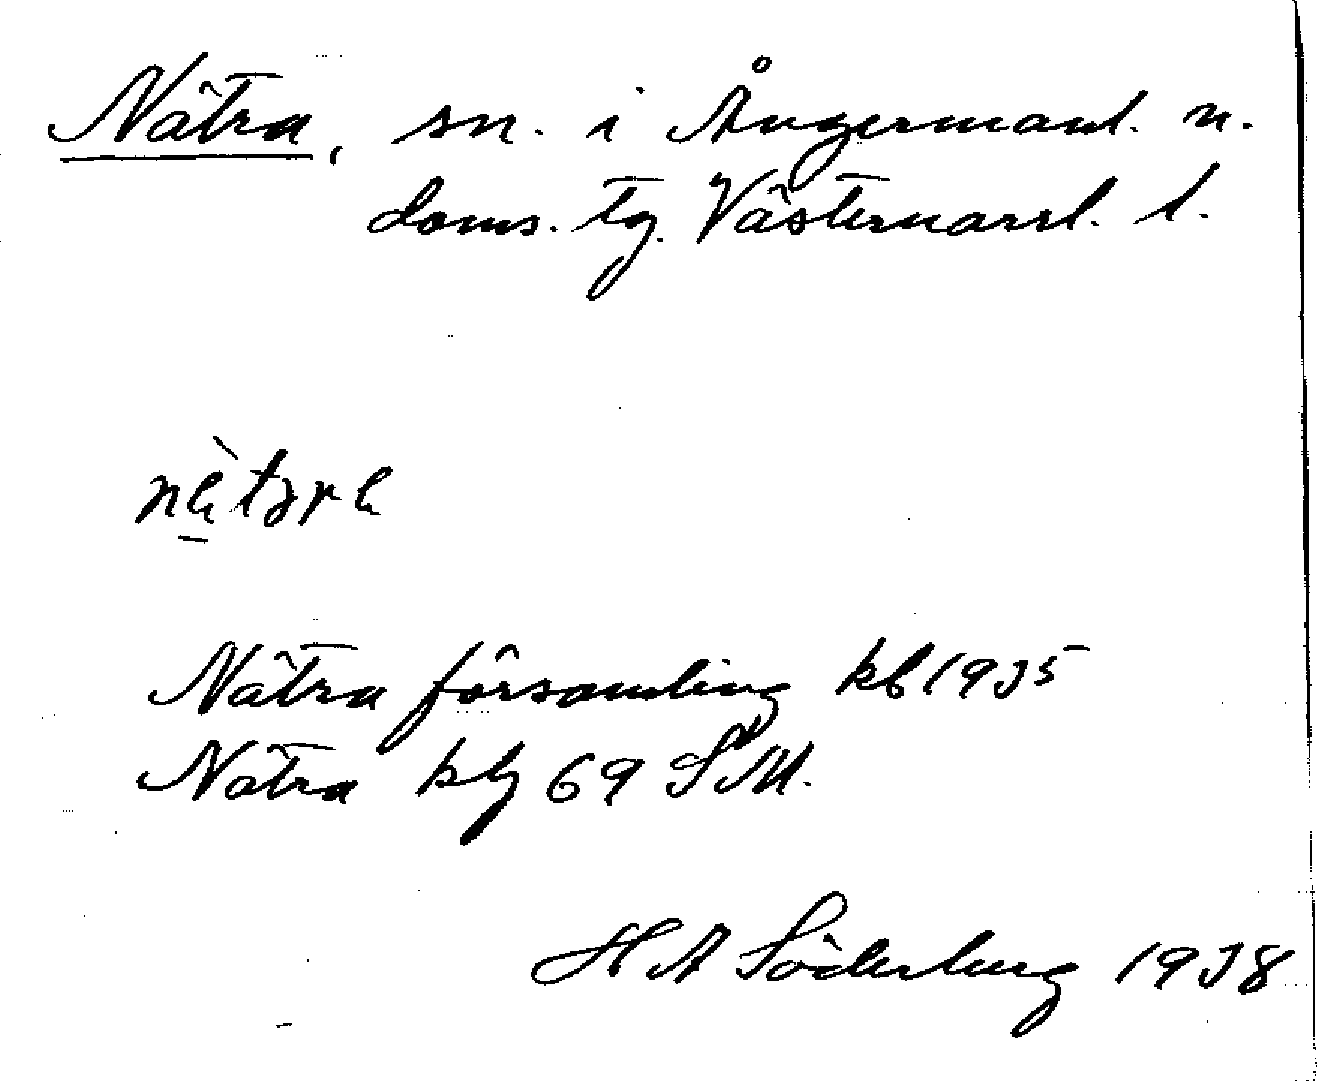 Nätra, sn. i Ångermanl. n.
doms. tg. Västernorrl. l.
Nätra församling kb 1935
Nätra bl 69 SM.
H A Söderberg 1938